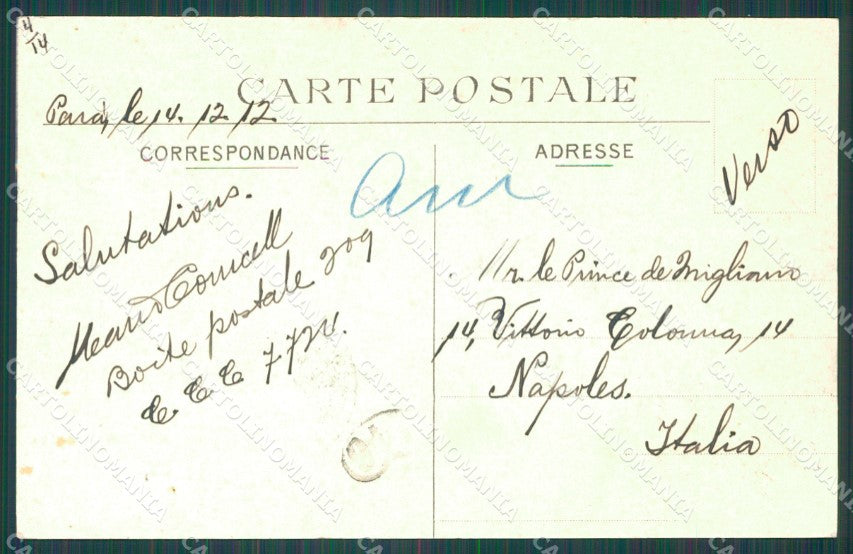 4/14
CARTE POSTALE
Pará, le 14. 12. 12.
CORRESPONDANCE
ADRESSE
Verso
Salutations.
Boite postale 709
C C C 7724.
Mr. le Prince de Migliano
14, Vittorio Colonna, 14
Napoles.
Italia
CARTOLINOMANIA